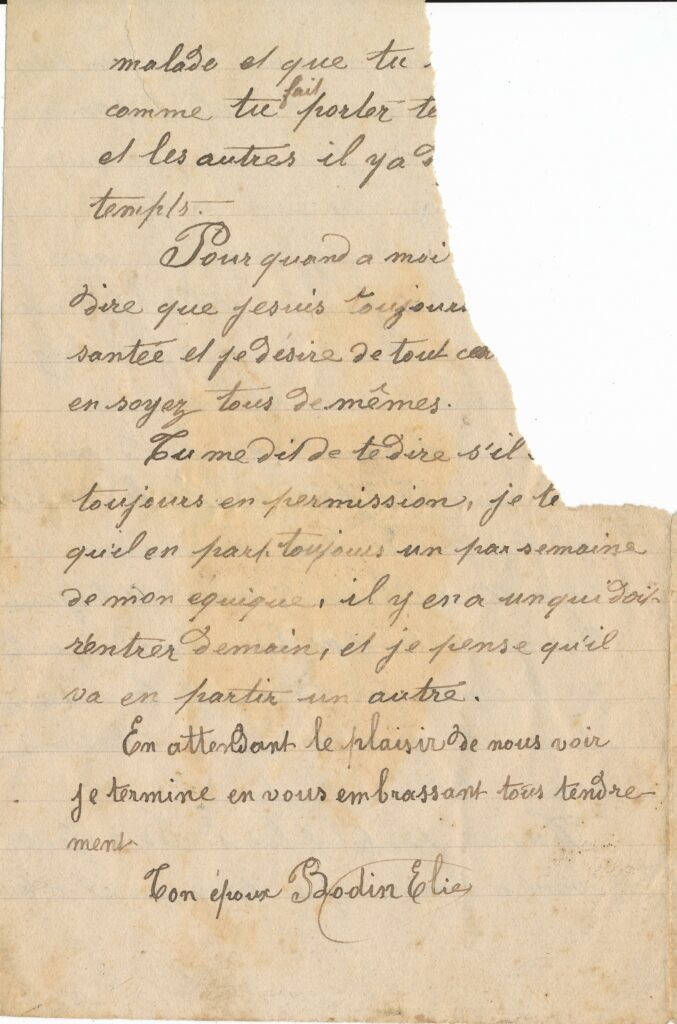 malade et que tu
comme tu fait porter te
et les autres il y a d
temps.
Pour quand a moi
dire que je suis toujours
santée et je désire de tout cœ
en soyez tous de mêmes.
Tu me dit de te dire s'il
toujours en permission, je te
qu'il en part toujours un par semaine
de mon équique, il y en a un qui doit
rentrer demain, et je pense qu'il
va en partir un autre.
En attendant le plaisir de nous voir
je termine en vous embrassant tous tendre-
ment
Ton époux Bodin Elie